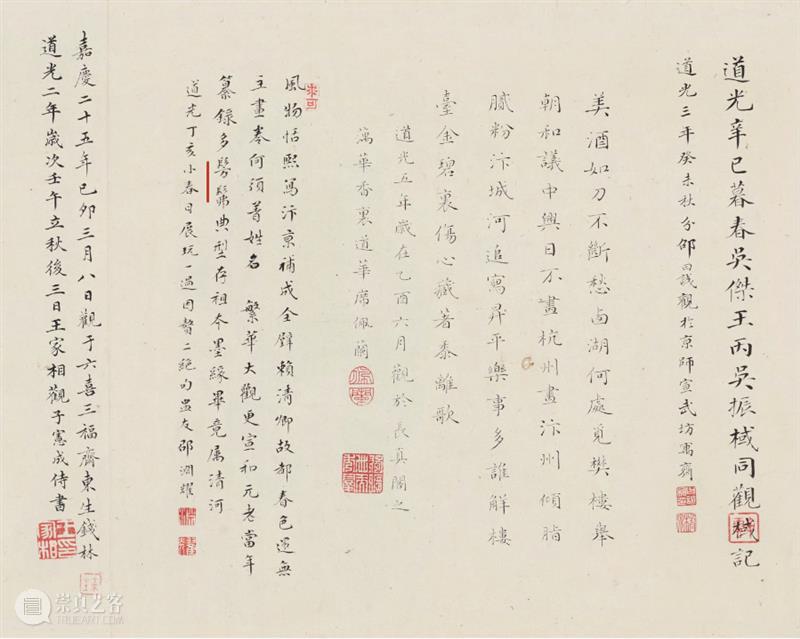 道光辛巳暮春吳傑王丙吳振棫同觀棫記
道光三年癸未秋分邵曰誠觀於京師宣武坊寓齋
美酒如刀不斷愁西湖何處覓樊樓舉
朝和議中興日不畫杭州畫汴州傾脂
膩粉汴城河追寫昇平樂事多誰解樓
臺金碧裏傷心藏著黍離歌
道光五年歲在乙酉六月觀於長真閣之
萬華香裏道華席佩蘭
風物恬熙寫汴京補成全璧賴清卿故都春色還無
主畫卷何須著姓名 繁華大觀更宣和元老當年
纂錄多髣髴典型存祖本墨緣畢竟屬清河
道光丁亥小春日展玩一過因題二絕句盅友邵淵耀
嘉慶二十五年己卯三月八日觀于六喜三福齋東生錢林
道光二年歲次壬午立秋後三日王家相觀子憲成侍書
崇真艺客